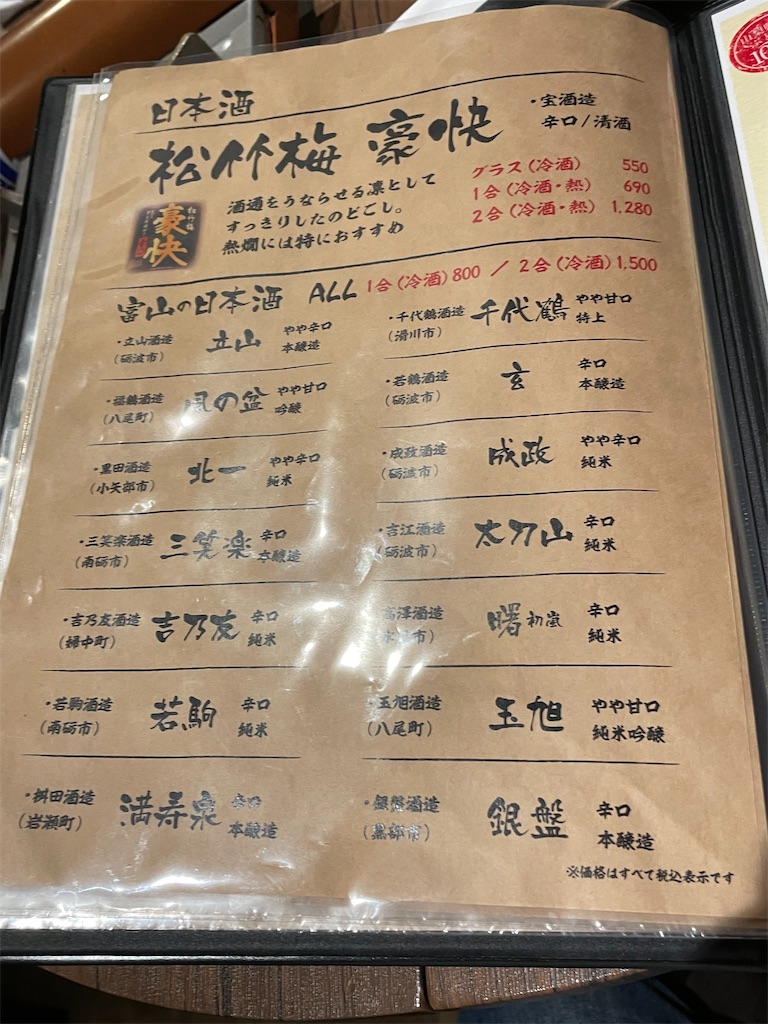 日本酒
松竹梅 豪快
・宝酒造
辛口/清酒
酒通をうならせる凛として
すっきりしたのどごし。
熱燗には特におすすめ
グラス(冷酒) 550
1合(冷酒・熱) 690
2合(冷酒・熱) 1,280
松竹梅
豪快
富山の日本酒 ALL 1合(冷酒)800 / 2合(冷酒)1,500
・立山酒造
(砺波市)
立山
やや辛口
本醸造
・千代鶴酒造
(滑川市)
千代鶴
やや甘口
特上
・福鶴酒造
(八尾町)
風の盆
やや甘口
吟醸
・若鶴酒造
(砺波市)
玄
辛口
本醸造
・黒田酒造
(小矢部市)
北一
やや辛口
純米
・成政酒造
(砺波市)
成政
やや辛口
純米
・三笑楽酒造
(南砺市)
三笑楽
辛口
本醸造
・吉江酒造
(砺波市)
太刀山
辛口
純米
・吉乃友酒造
(婦中町)
吉乃友
辛口
純米
高澤酒造
曙 初嵐
辛口
純米
・若駒酒造
(南砺市)
若駒
辛口
純米
・玉旭酒造
(八尾町)
玉旭
やや甘口
純米吟醸
・桝田酒造
(岩瀬町)
満寿泉
辛口
本醸造
・銀盤酒造
(黒部市)
銀盤
辛口
本醸造
※価格はすべて税込表示です